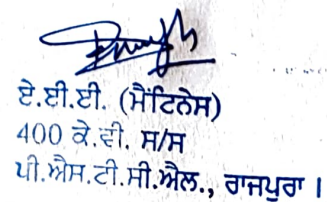 ਏ.ਈ.ਈ. (ਮੈਂਟਿਨੇਸ)
400 ਕੇ.ਵੀ. ਸ/ਸ
ਪੀ.ਐਸ.ਟੀ.ਸੀ.ਐਲ., ਰਾਜਪੁਰਾ ।